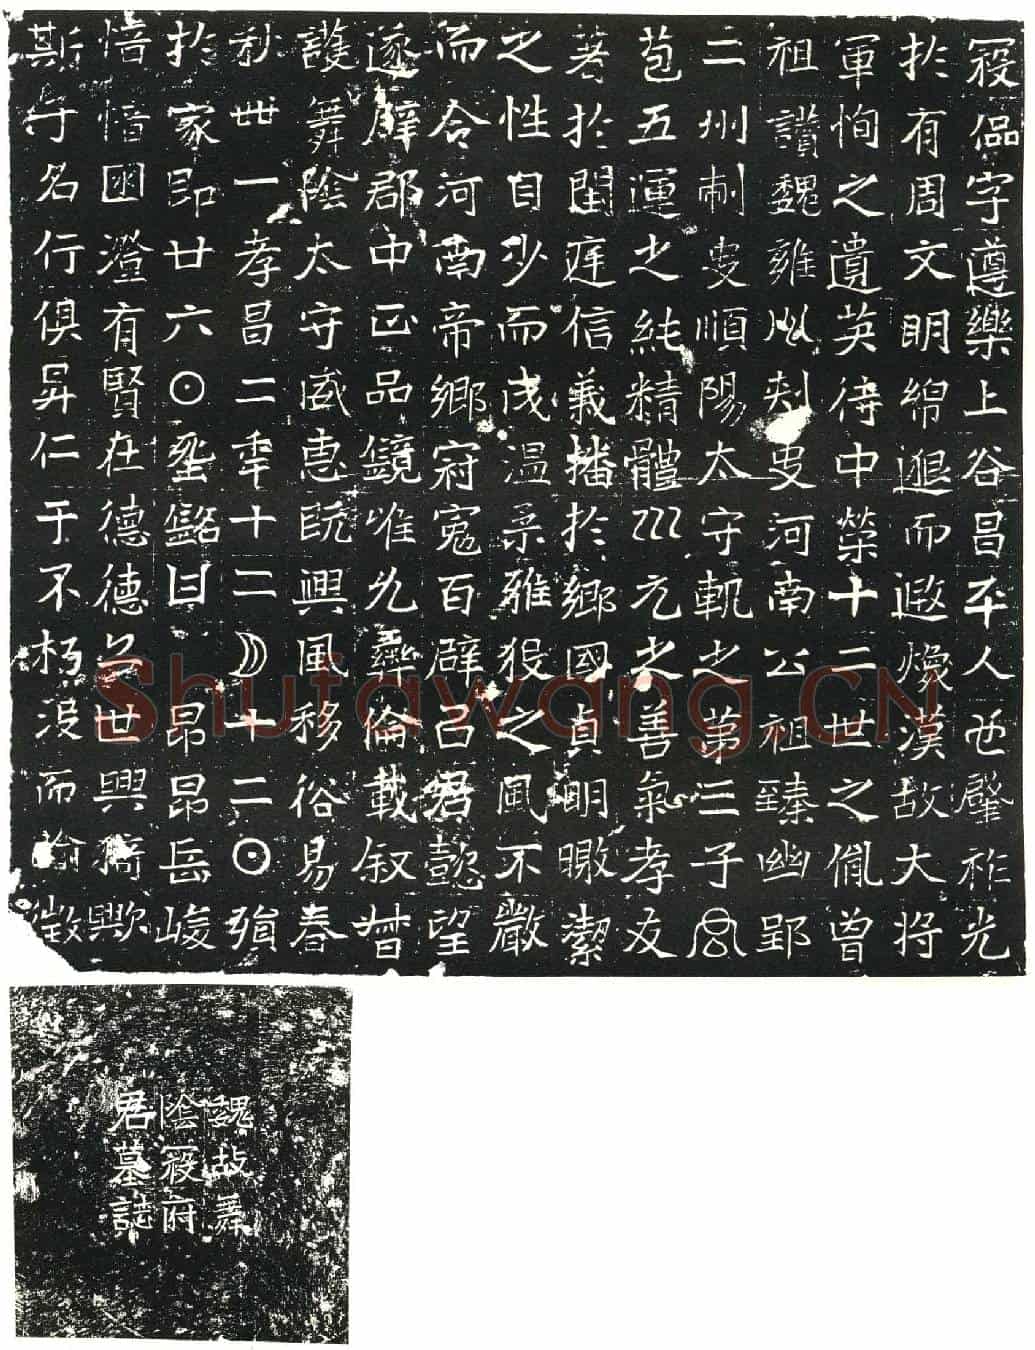 寇偘字遵樂上谷昌平人也肇祚光
於有周文明綿邈而遐煥漢故大將
軍恂之遺英侍中榮十二世之胤曾
祖讚魏雍州刾史河南公祖臻幽郢
二州刾史順陽太守軌之第三子公
苞五運之純精體川元之善氣孝友
著於閨庭信義播於鄉國貞明皦潔
之性自少而成温柔雍穆之風不嚴
而合河南帝鄉冠冕百辟吕君懿望
遂辟郡中正品鏡唯允彝倫載叙督
護舞陰太守威惠既興風移俗易春
秋卌一孝昌二年十二月十二日殞
於家即廿六日塟銘曰昂昂岳峻
愔愔囦澄有賢在德德名世興猗歟
斯子名行俱昇仁于不朽没而愉徵
魏故舞
陰寇府
君墓誌
Shufawang.CN